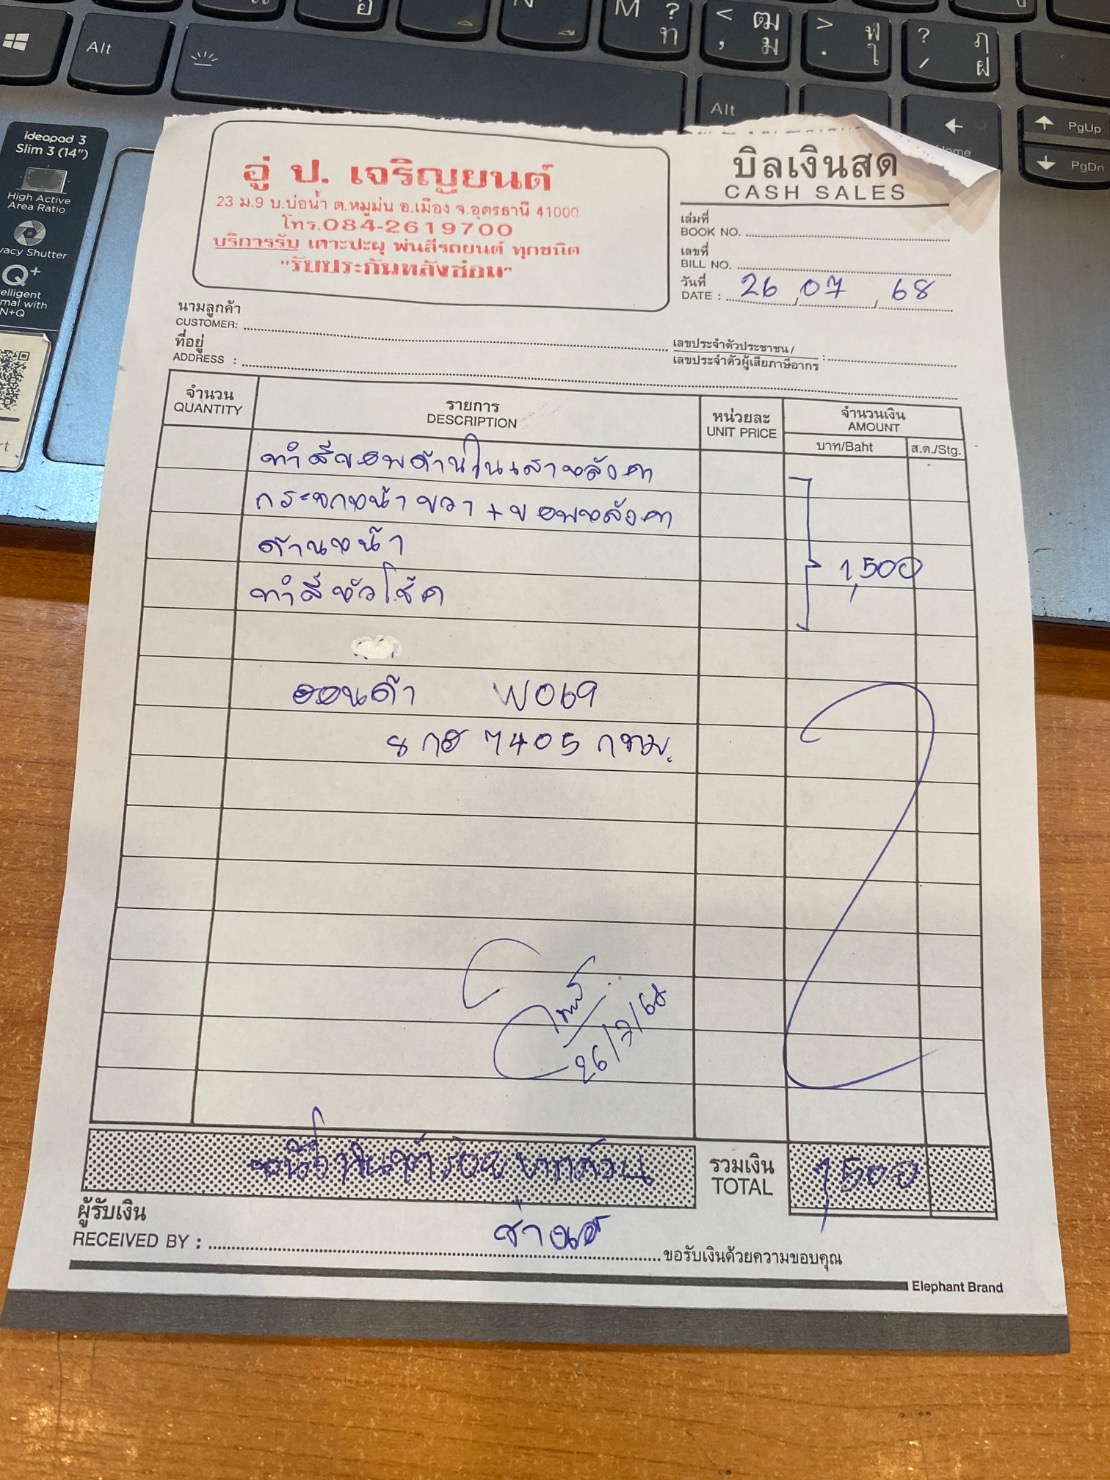 Alt
M ? ท
< ฒ , ม
> ฬ . ใ
? ฦ / ฝ
Alt
Home
PgUp
PgDn
ideapad 3
Slim 3 (14")
High Active
Area Ratio
vacy Shutter
Q+
อู่ ป. เจริญยนต์
23 ม.9 บ.บ่อน้ำ ต.หมูม่น อ.เมือง จ.อุดรธานี 41000
โทร.084-2619700
บริการรับ เคาะปะผุ พ่นสีรถยนต์ ทุกชนิด
"รับประกันหลังซ่อม"
บิลเงินสด
CASH SALES
เล่มที่
BOOK NO.
เลขที่
BILL NO.
วันที่
DATE : 26, 07, 68
นามลูกค้า
CUSTOMER:
ที่อยู่
ADDRESS :
เลขประจำตัวประชาชน /
เลขประจำตัวผู้เสียภาษีอากร :
จำนวน
QUANTITY
รายการ
DESCRIPTION
หน่วยละ
UNIT PRICE
จำนวนเงิน
AMOUNT
บาท/Baht
ส.ต./Stg.
ทำสีขอบด้านในเสาหลังคา
กระจกหน้าขวา + ขอบหลังคา
ด้านหน้า
ทำสีหัวโช๊ค
1,500
ฮอนด้า W069
8 กฮ 7405 กทม.
26/7/68
หนึ่งพันห้าร้อยบาทถ้วน
รวมเงิน
TOTAL
1,500
ผู้รับเงิน
RECEIVED BY :
ขอรับเงินด้วยความขอบคุณ
Elephant Brand